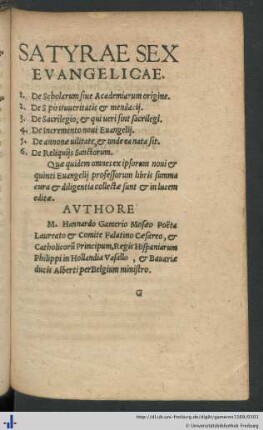 SATYRAE SEX
EVANGELICAE.
1. De Scholarum siue Academiarum origine.
2. De Spiritu ueritatis & mendacij.
3. De Sacrilegio, & qui ueri sint sacrilegi.
4. De Incremento noui Euangelij.
5. De annonæ uilitate, & unde ea nata sit.
6. De Reliquijs Sanctorum.
Quæ quidem omnes ex ipsorum noui &
quinti Euangelij professorum libris summa
cura & diligentia collectæ sunt & in lucem
editæ.
AVTHORE
M. Hannardo Gamerio Mosæo Poëta
Laureato & Comite Palatino Cæsareo, &
Catholicorũ Principum, Regis Hispaniarum
Philippi in Hollandia Vasallo, & Bauariæ
ducis Alberti per Belgium ministro.
G
http://dl.ub.uni-freiburg.de/diglit/gamerius1568/0101
© Universitätsbibliothek Freiburg